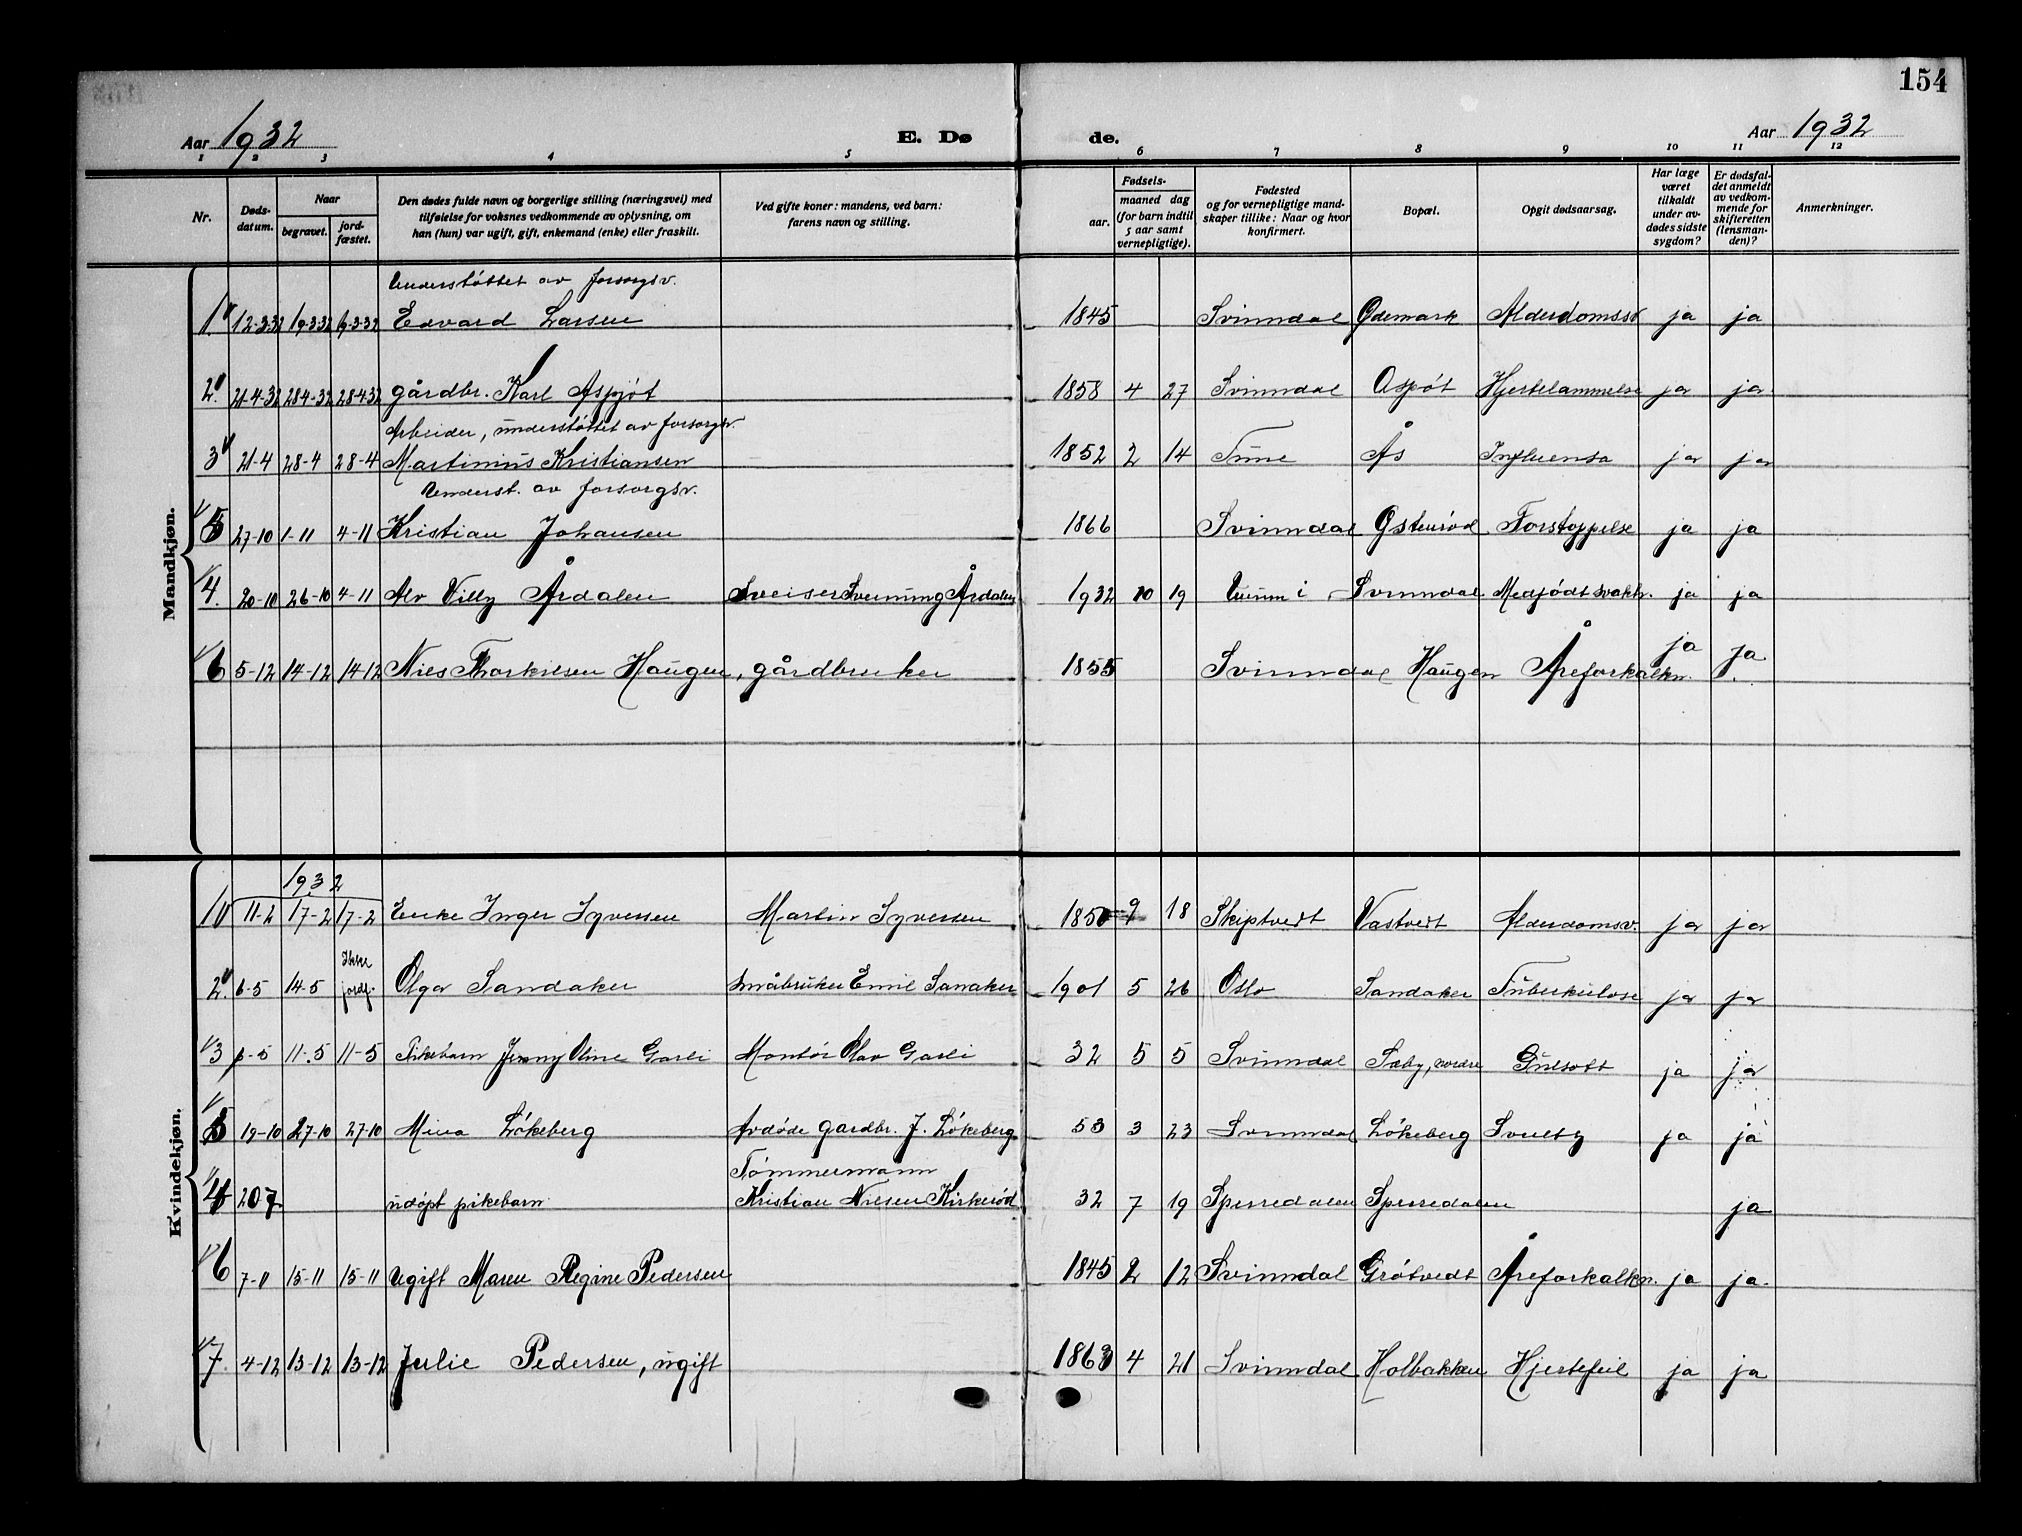 154
Aar 1932 E. Dø de. Aar 1932
1 2 3 4 5 6 7 8 9 10 11 12
Nr.
Døds-
datum.
Naar
begravet.
jord-
fæstet.
Den dødes fulde navn og borgerlige stilling (næringsvei) med
tilføielse for voksnes vedkommende av oplysning, om
han (hun) var ugift, gift, enkemand (enke) eller fraskilt.
Ved gifte koner: mandens, ved barn:
farens navn og stilling.
Fødsels-
aar. maaned dag
(for barn indtil
5 aar samt
vernepligtige).
Fødested
og for vernepligtige mand-
skaper tillike: Naar og hvor
konfirmert.
Bopæl.
Opgit dødsaarsag.
Har læge
været
tilkaldt
under av-
dødes sidste
sygdom?
Er dødsfal-
det anmeldt
av vedkom-
mende for
skifteretten
(lensman-
den)?
Anmerkninger.
Mandkjøn.
Understøttet av forsorgsv.
1. 12-3-32 19-3-32 19-3-32 Edvard Larsen 1845 Svinndal Ødemark Alderdomssv. ja ja
2. 21-4-32 28-4-32 28-4-32 gårdbr. Karl Aspjøt 1858 4 27 Svinndal Aspøt Hjertelammelse ja ja
Arbeider, understøttet av forsorgsv.
3 21-4 28-4 28-4 Martinius Kristiansen 1852 2 14 Tune Ås Influensa ja ja
Underst. av forsorgsv.
5 27-10 1-11 4-11 Kristian Johansen 1866 Svinndal Østenrød Forstoppelse ja ja
4. 20-10 26-10 4-11 Alv Villy Årdalen Sveiser Sverining Årdalen 1932 10 19 i Svinndal Medfødt svakh. ja ja
6 5-12 14-12 14-12 Niels Thorkilsen Haugen, gårdbruker 1855 Svinndal Haugen Åreforkalkn. ja ja.
Kvindekjøn.
1932
1 11-2 17-2 17-2 Enke Inger Syversen Martin Syversen 1850 9 18 Skiptvedt Vastvedt Alderdomsv. ja ja
2. 6-5 14-5 Ikke jordf. Olga Sandaker Småbruker Emil Sanaker 1901 5 26 Oslo Sandaker Tuberkulose ja ja
3 11-5 11-5 Pikebarn Jenny Oline Garli Montør Olav Garli 32 5 5 Svinndal Sæby, nordre Gulsott ja ja
5 19-10 27-10 27-10 Mina Løkeberg Avdøde gardbr. J. Løkeberg 53 3 23 Svinndal Løkeberg Svulst ja ja
Tømmermann
4 20 7. udøpt pikebarn Kristian Nilsen Kirkerød 32 7 19 Sperredalen Sperredalen ja
6 7-11 15-11 15-11 Ugift Maren Regine Pedersen 1845 2 12 Svinndal Grøtvedt Åreforkalkn. ja ja
7. 4-12 13-12 13-12 Julie Pedersen, ugift 1863 4 21 Svinndal Holbakken Hjertefeil ja ja